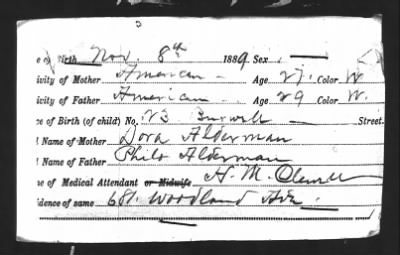 e of Birth Nov. 8th 1889 Sex
ivity of Mother American Age 27. Color W
icity of Father American Age 29 Color W.
ce of Birth (of child) No. 23 Burwell Street.
l Name of Mother Dora Alderman
l Name of Father Philo Alderman
e of Medical Attendant or Midwife H. M.
idence of same 681. Woodland Ave.